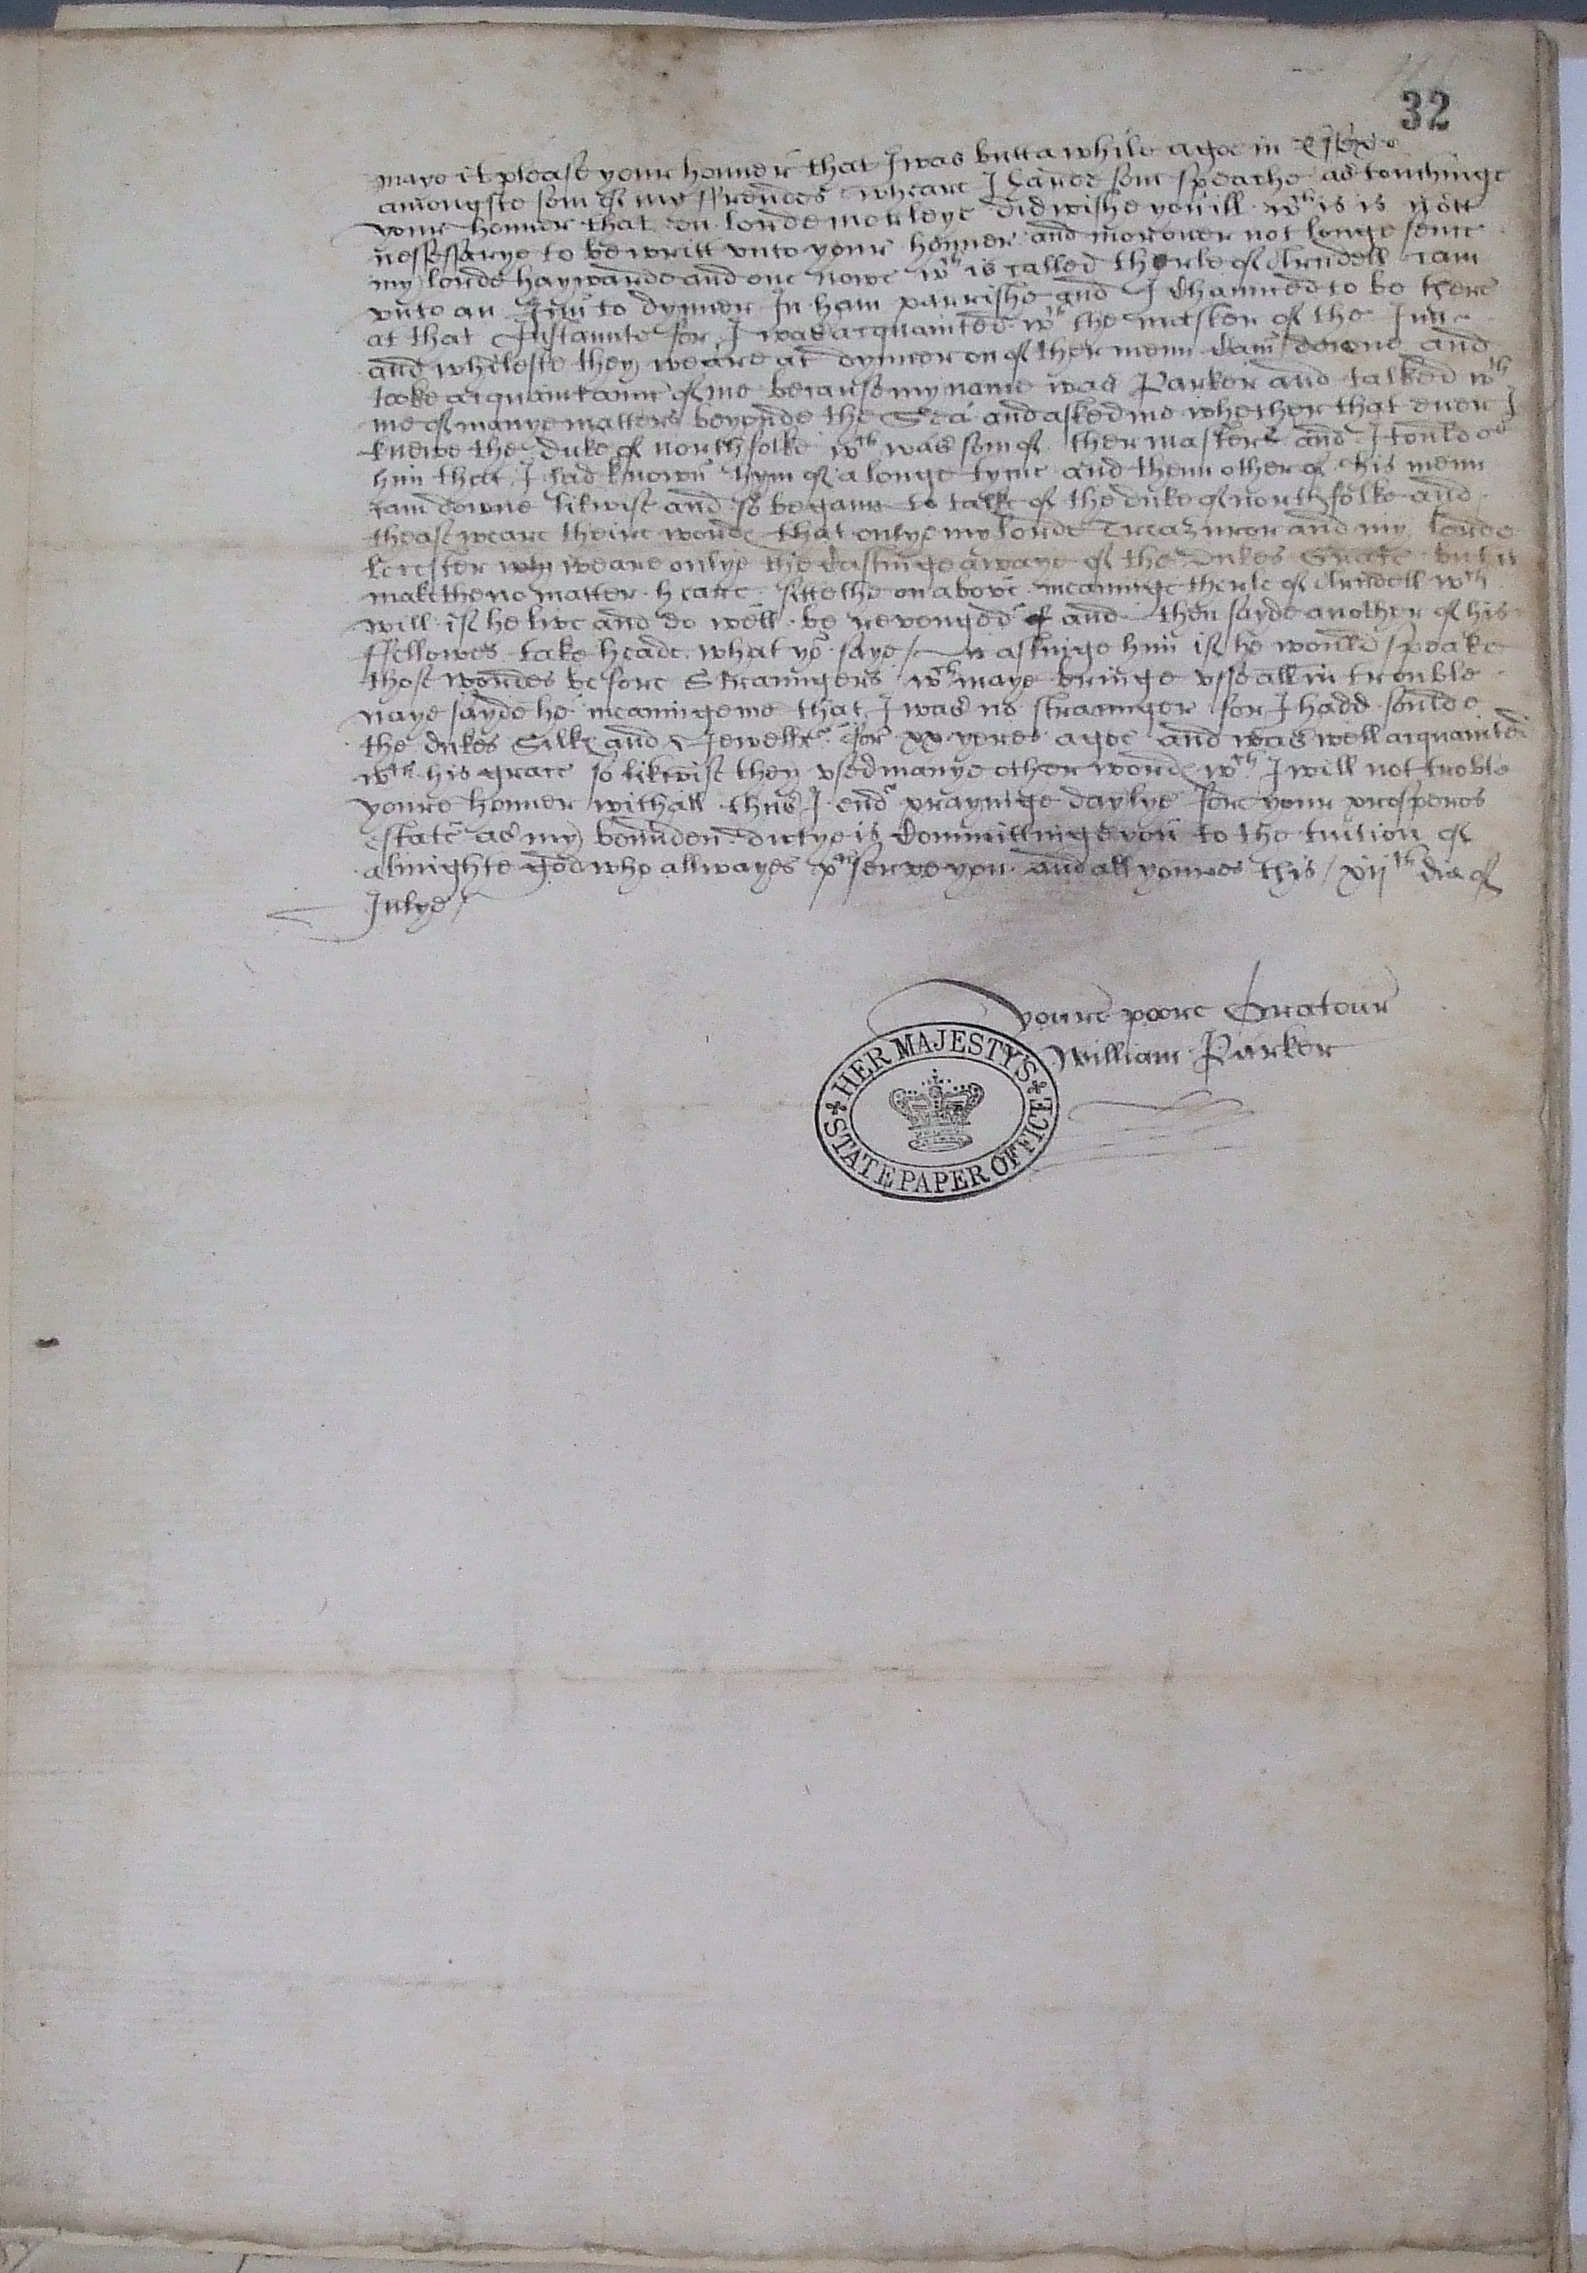 32
maye it please your honner that I was butt a while agoe in Essex
amongste som of my ffrendes wheare I harde som speache as touchinge
your honner that on lorde morleye did wishe you ill wch is is nott
nessessarye to be writt vnto your honner and morouer not longe senc
my lorde haywarde and one nowe wch is called therle of Arndell cam
vnto an Inn to dynner In ham parrishe and I chaunced to be there
at that Instaunte for I was acquainted wth the master of the Inn
and whileste they weare at dynner on of ther menn cam downe and
tooke acquaintaunc of me because my name was Parker and talked wth
me of manye matters beyonde the Sea and asked me whether that euer I
knewe the duke of northfolke wch was som of ther masters and I tould
him that I had knowen hym of a longe tyme and thenn other of his menn
cam downe likwise and so begann to talke of the duke of northfolke and
theas weare theire wordes that onlye my lorde Treazuror and my lorde
Leicester weare onlye the castinge awaye of the dukes Grace but it
makethe no matter heare sittethe on above meaninge therle of Arndell wch
will if he live and do well be revenged and then sayde another of his
ffellowes take heade what yo saye askinge him if he would speake
those wordes before Straungers wch maye bringe vsse all in trouble
naye sayde he meaninge me that I was no straunger for I hadd soulde
the dukes Silkes and Jewells for xx yeres agoe and was well acquainted
wth his grace so likwise they vsed manye other wordes wch I will not troble
youre honner withall thus I end prayinge daylye fore your prosperos
estate as my bounden dutye is Committinge you to the tuition of
almighte God who allwayes preserve you and all youres this xijth die of
Julye
youre poore Oratour
William Parker
HER MAJESTY'S STATE PAPER OFFICE